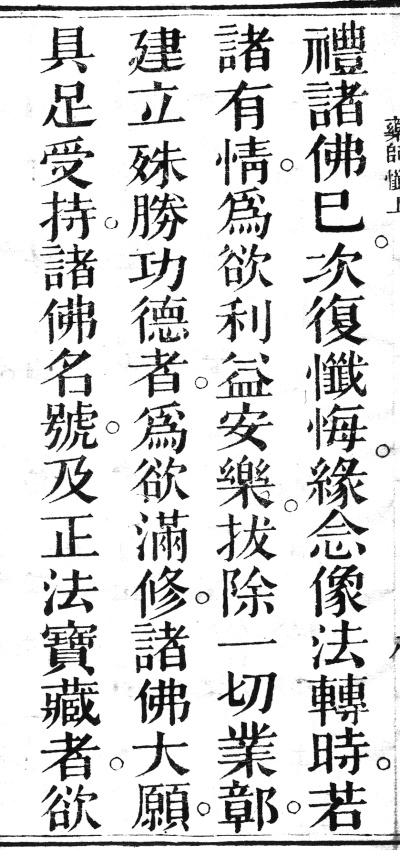 藥師懺上
禮諸佛已。次復懺悔。緣念像法轉時。若
諸有情。為欲利益安樂。拔除一切業鄣。
建立殊勝功德者。為欲滿修。諸佛大願。
具足受持。諸佛名號。及正法寶藏者。欲